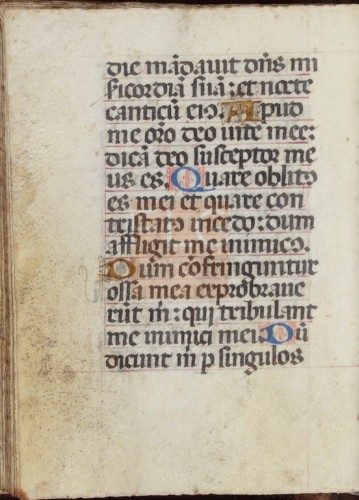 die mādavit dn̄s mi
sicordiā suā: et nocte
canticū eiꝰ. Apud
me oro deo vite mee:
dicā deo susceptor me
us es. Quare oblitꝰ
es mei et quare con
tristatꝰ incedo: dum
affligit me inimicꝰ.
Dum cōfringuntur
ossa mea exprobrave
rūt m̄: qui tribulant
me inimici mei. Dū
dicunt m̄ p singulos